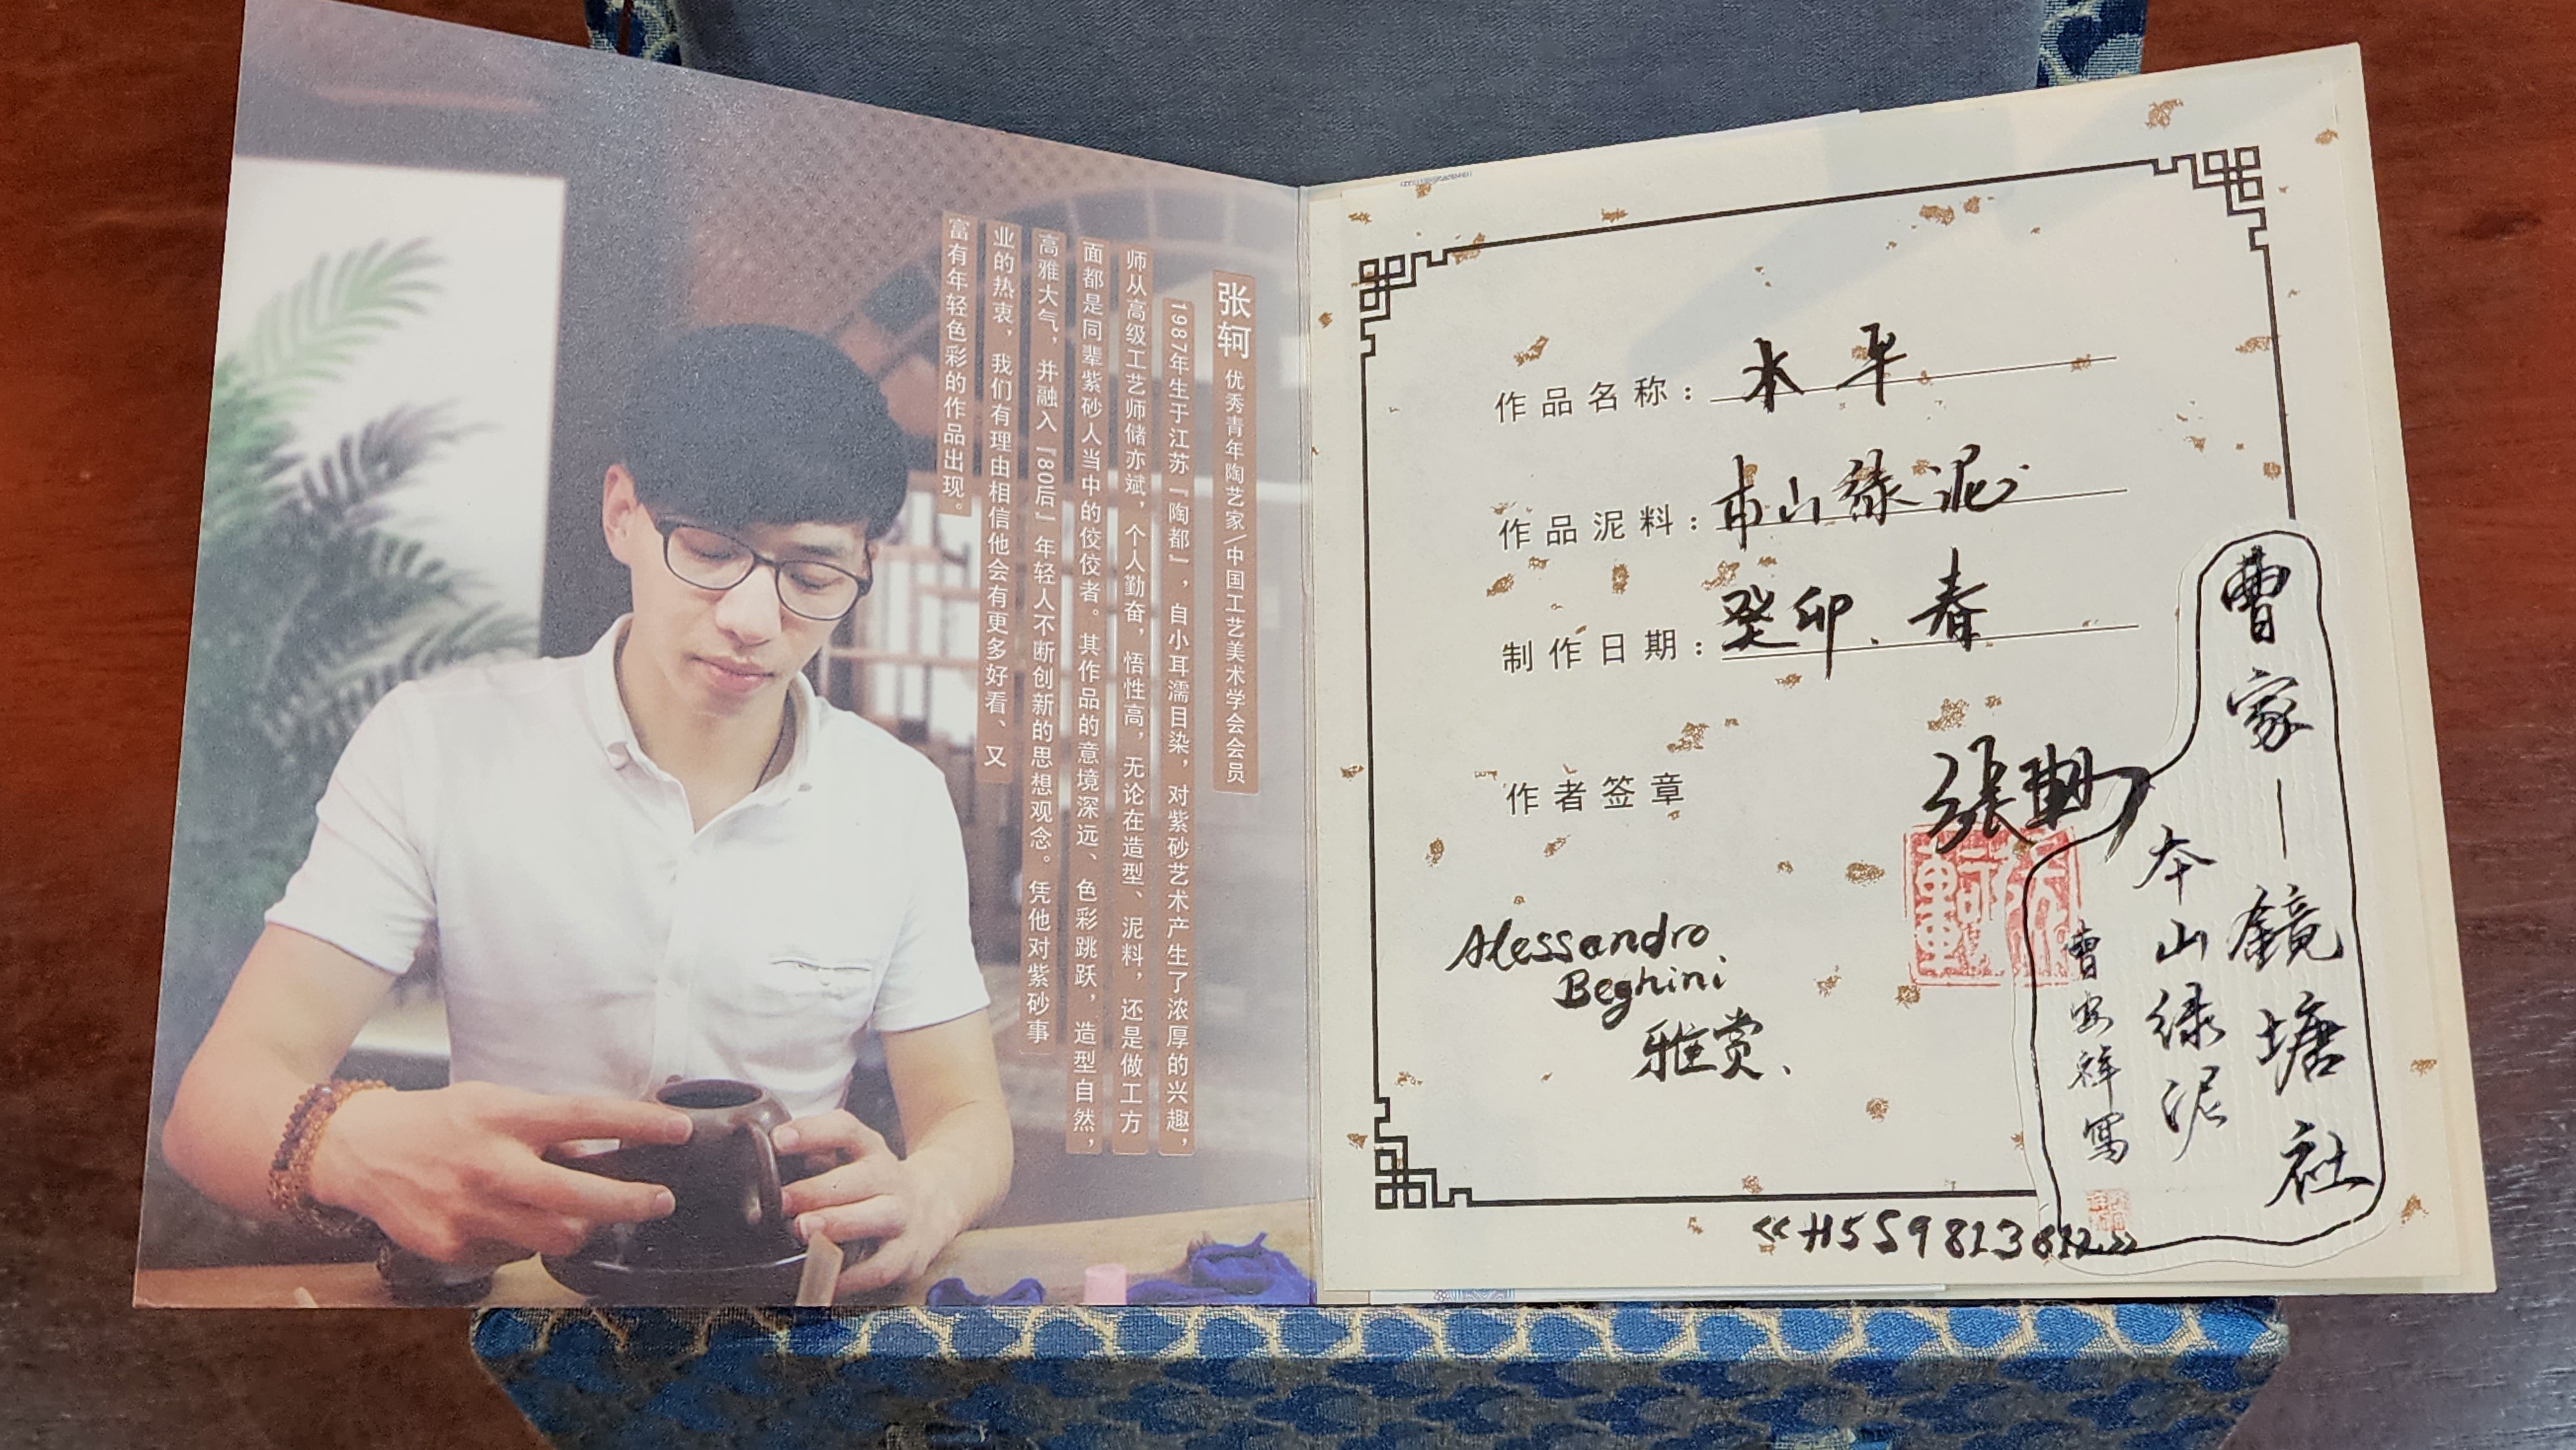 张轲 优秀青年陶艺家\中国工艺美术学会会员
1987年生于江苏『陶都』，自小耳濡目染，对紫砂艺术产生了浓厚的兴趣，
师从高级工艺师储亦斌，个人勤奋，悟性高，无论在造型、泥料，还是做工方
面都是同辈紫砂人当中的佼佼者。其作品的意境深远、色彩跳跃，造型自然，
高雅大气，并融入『80后』年轻人不断创新的思想观念。凭他对紫砂事
业的热衷，我们有理由相信他会有更多好看、又
富有年轻色彩的作品出现。
作品名称：水平
作品泥料：本山绿泥
制作日期：癸卯、春
作者签章
張軻
Alessandro
Beghini
雅赏、
曹家—鏡塘社
本山绿泥
曹安祥寫